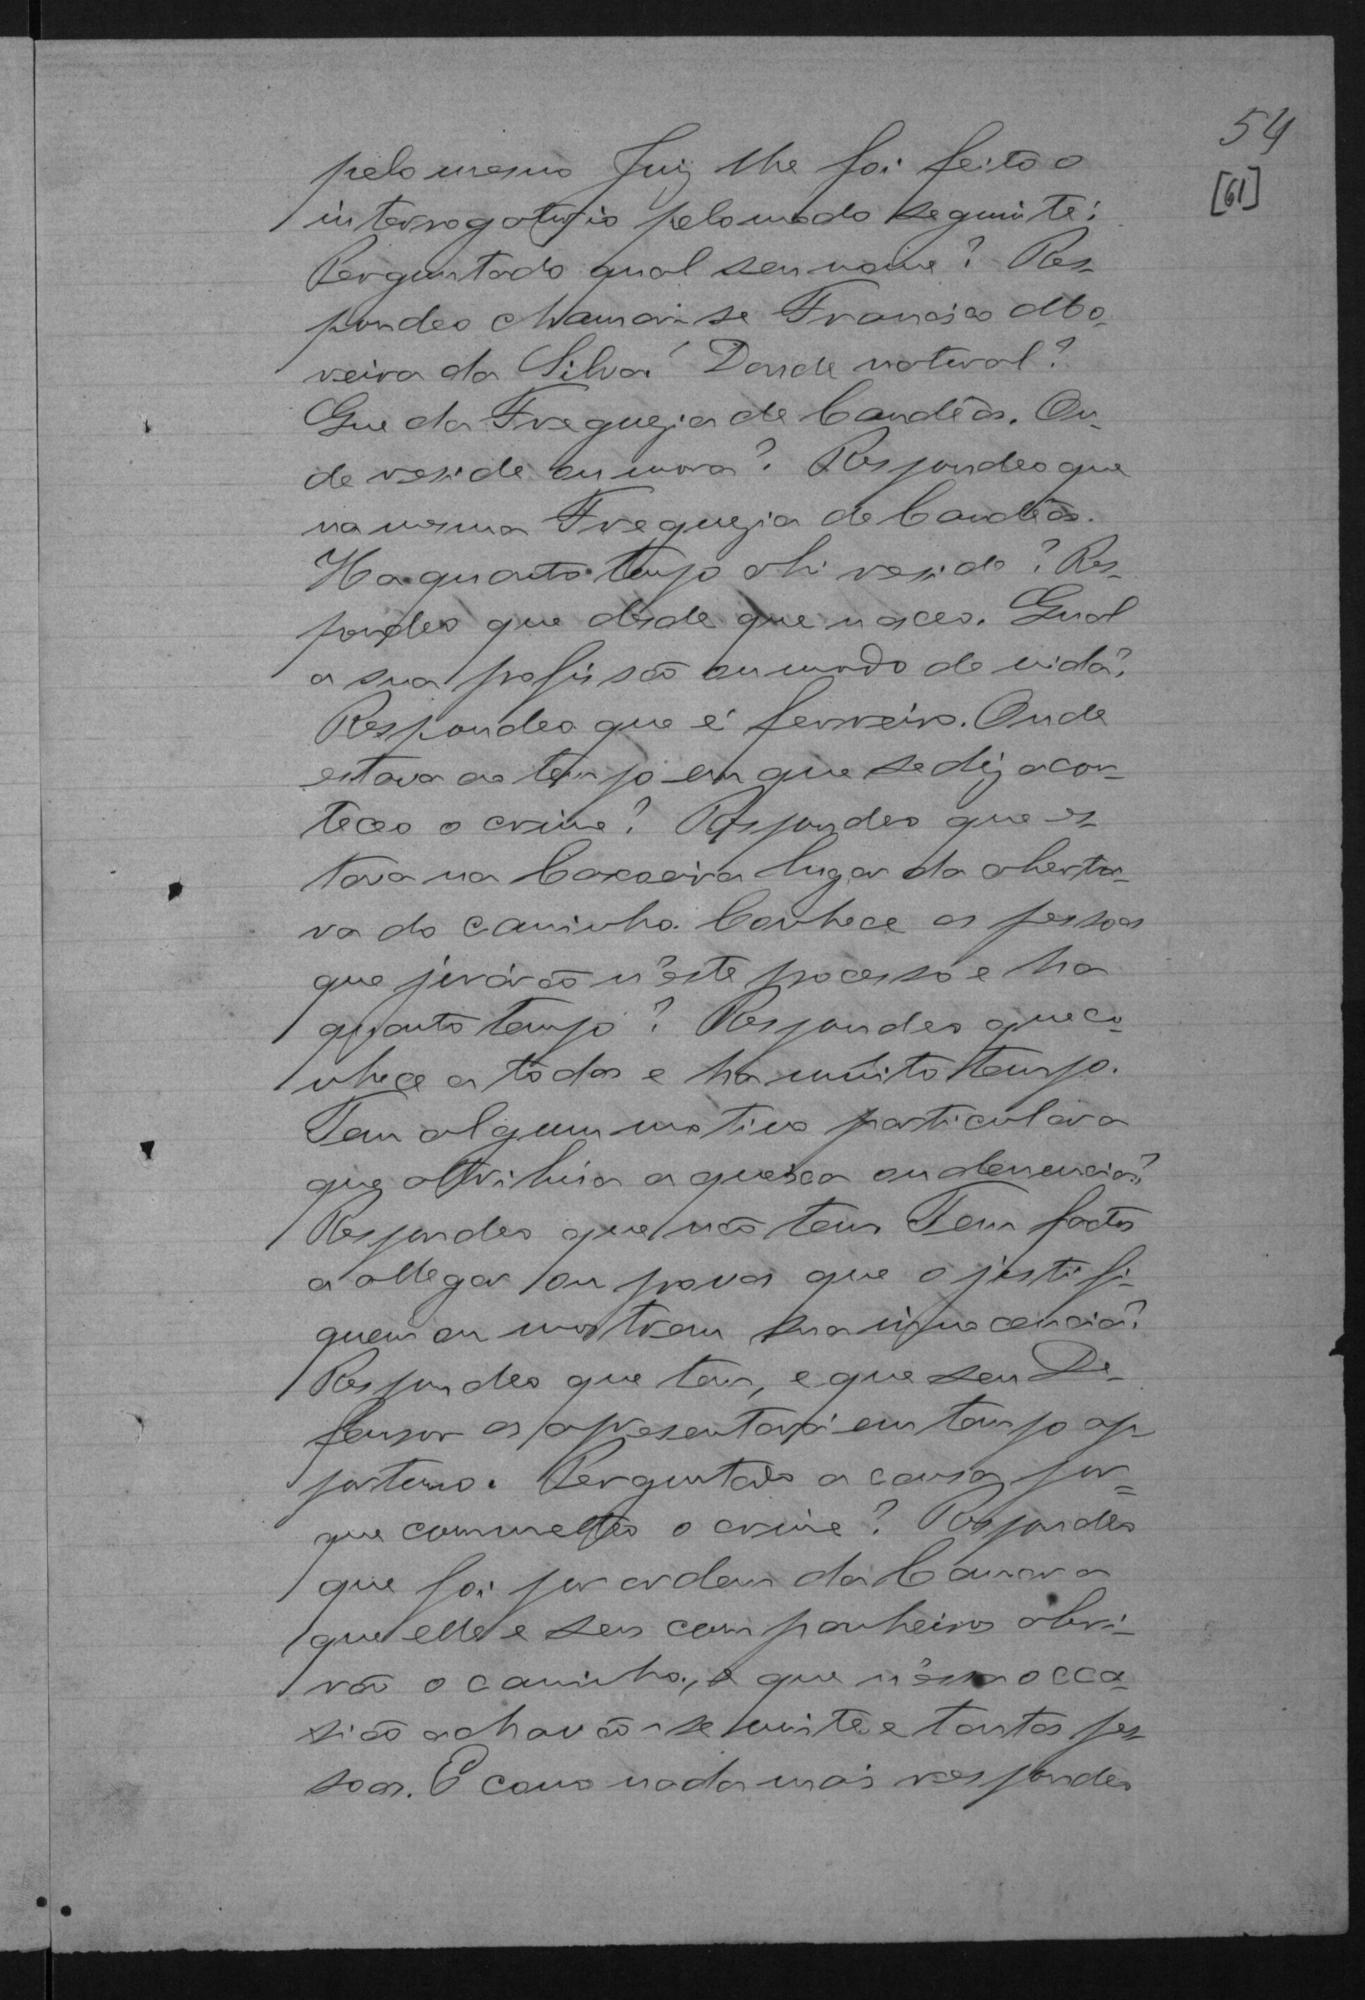 54
[61]
pelo mesmo Juiz lhe foi feito o
interrogatorio pelo modo seguinte:
Perguntado qual seu nome? Res-
pondeo chamar-se Francisco Mo-
reira da Silva. Donde natural?
Que da Freguezia de Candêas. On-
de reside ou mora? Respondeo que
na mesma Freguezia de Candêas.
Ha quanto tempo ahi reside? Res-
pondeo que desde que nasceo. Qual
a sua profissão ou modo de vida?
Respondeo que é ferreiro. Onde
estava ao tempo em que se diz acon-
teceo o crime? Respondeo que es-
tava na Caxoeira lugar da abertu-
ra do caminho. Conhece as pessoas
que jurárão n'este processo e ha
quanto tempo? Respondeo que co-
nhece a todas e ha muito tempo.
Tem algum motivo particular a
que attribúa a queixa ou denuncia?
Respondeo que não tem Tem factos
a allegar ou provas que o justifi-
quem ou mostrem sua innocencia?
Respondeo que tem, e que seu De-
fensor as apresentará em tempo op-
portuno. Perguntado a causa por-
que commetteo o crime? Respondeo
que foi por ordem da Camara
que elle e seus companheiros abri-
rão o caminho, e que n'essa occa-
sião achavão-se vinte e tantas pes-
soas. E como nada mais respondeo